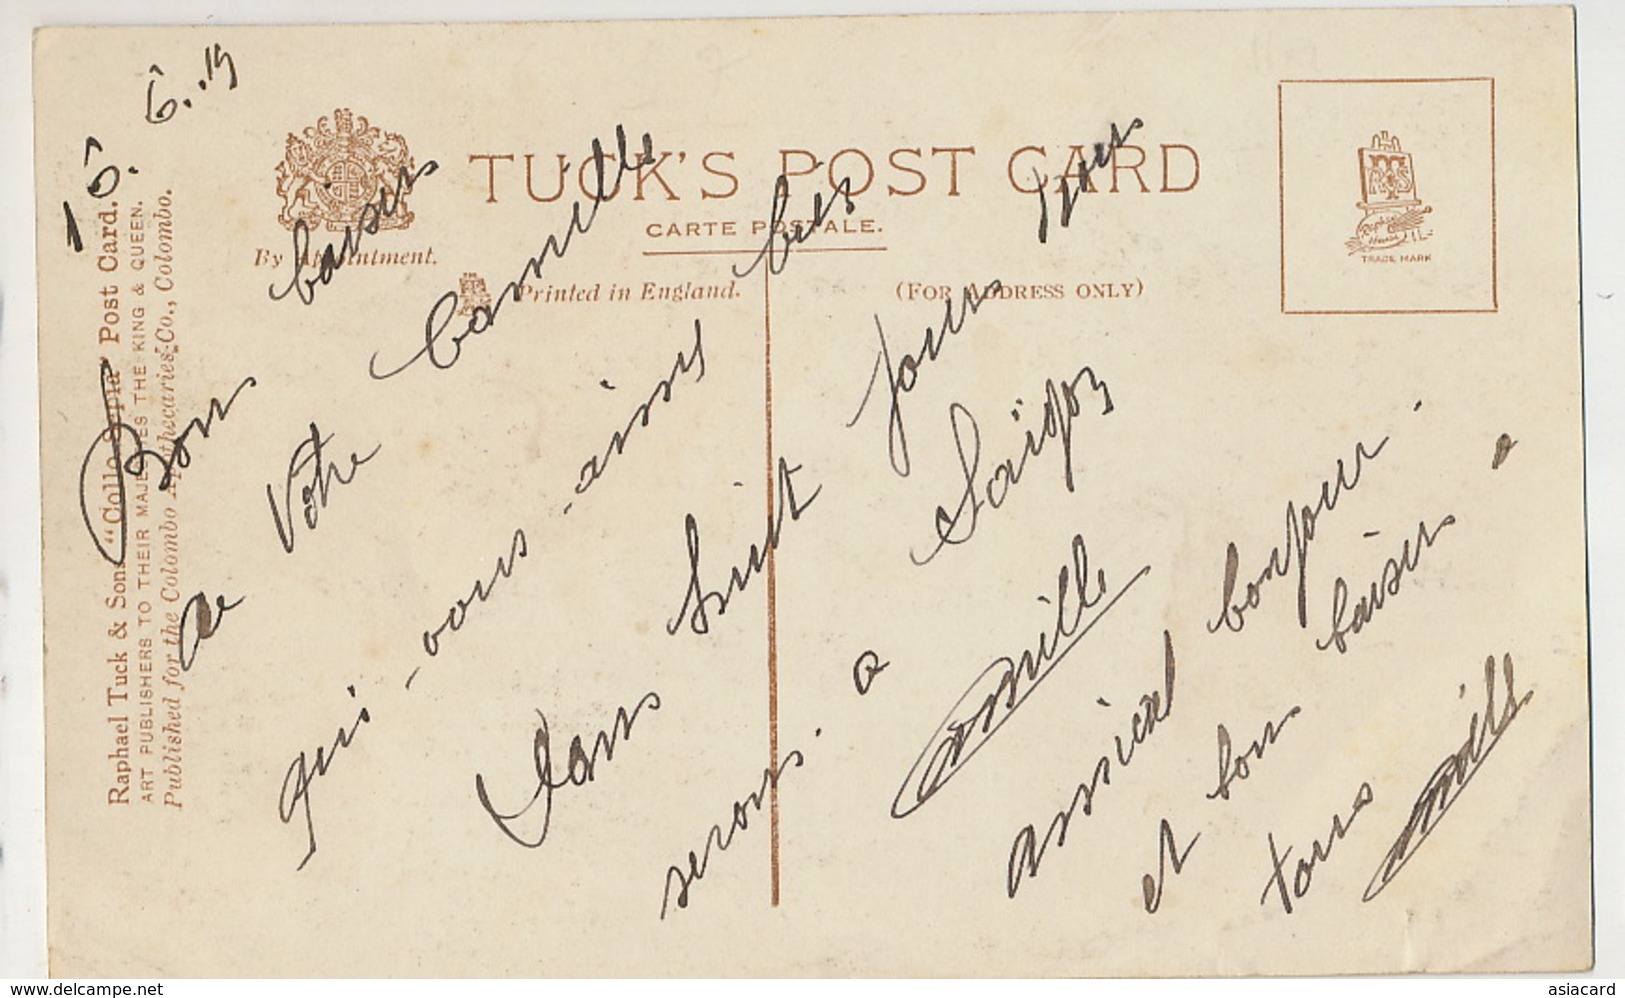 15. 6. 19
TUCK'S POST CARD
CARTE POSTALE.
By Appointment.
Printed in England.
(FOR ADDRESS ONLY)
TRADE MARK
Raphael Tuck & Sons "Collo Sepia" Post Card.
ART PUBLISHERS TO THEIR MAJESTIES THE KING & QUEEN.
Published for the Colombo Apothecaries Co., Colombo.
Bon baiser
de Votre Camille
qui vous aime bien
Dans huit jours nous
serons. a Saïgon
Mille
amical bonjour.
et bon baiser a
tous
Mille
www.delcampe.net
asiacard